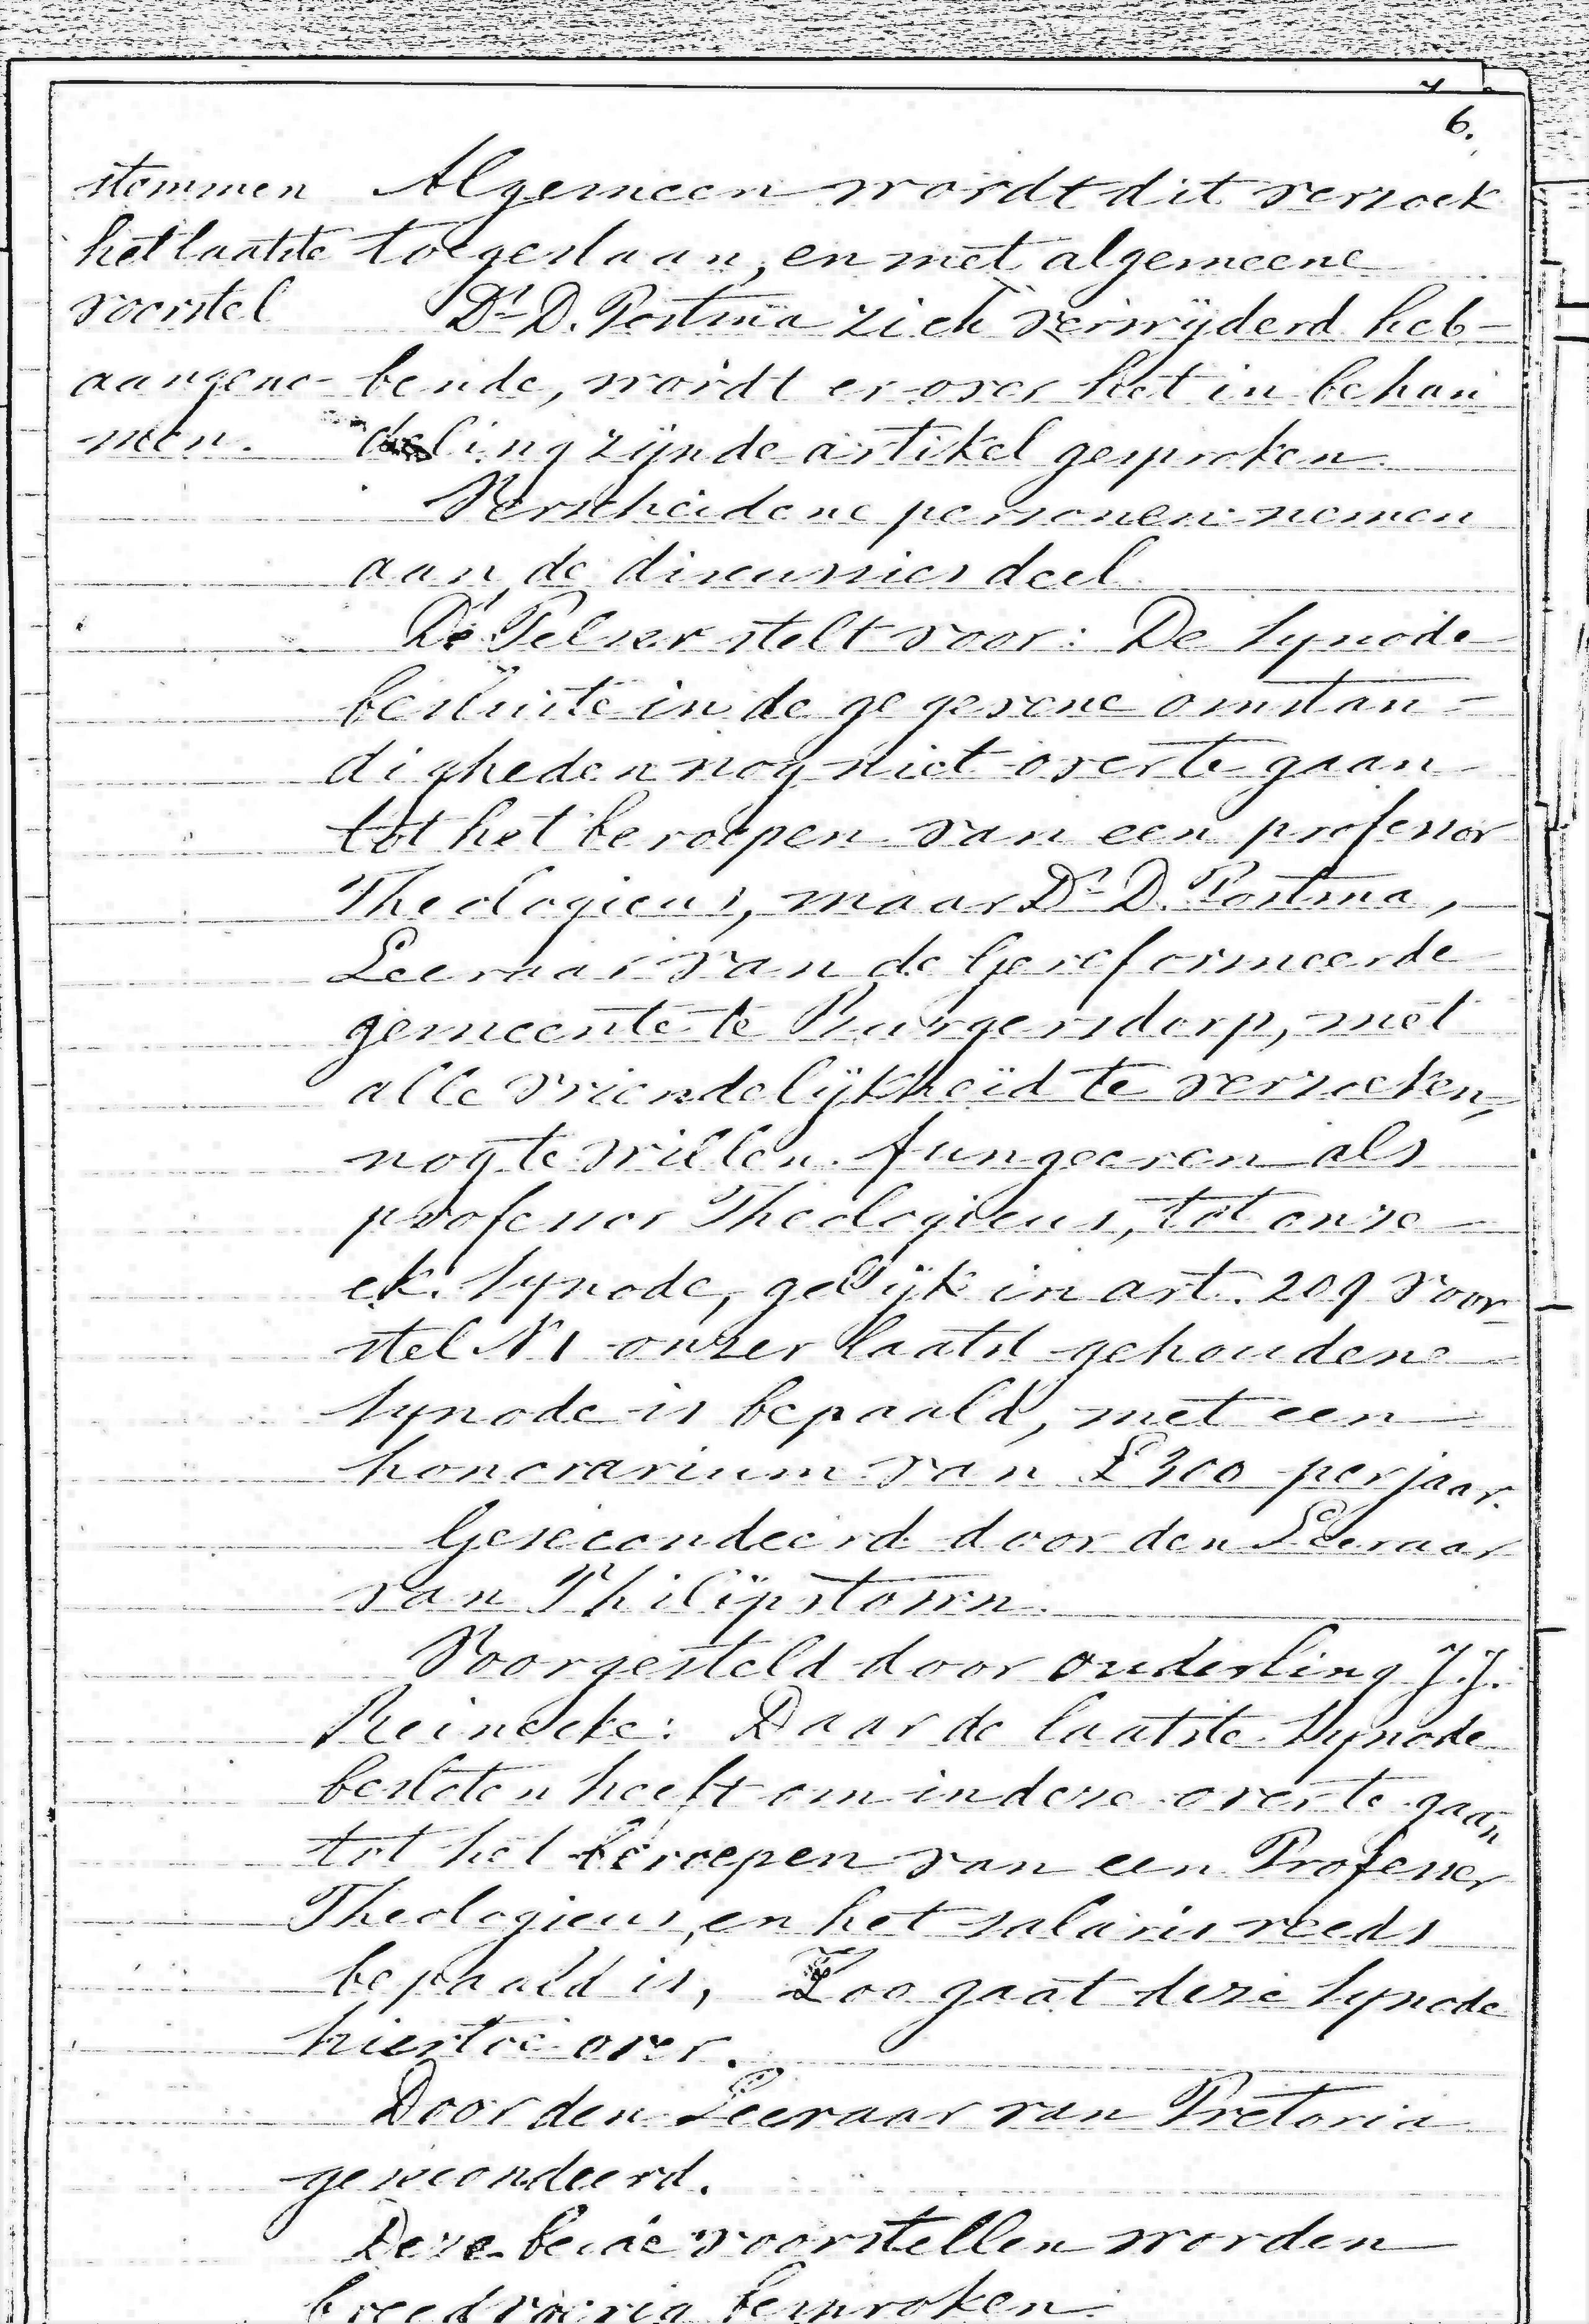 6.
stemmen Algemeen wordt dit verzoek
het laatste toegestaan, en met algemeene
voorstel Ds D. Postma zich verwijderd heb-
aangeno- bende, wordt er over het in behan
men. deling zijnde artikel gesproken.
Verscheidene personen nemen
aan de discussies deel.
Ds Pelser stelt voor: De Synode
besluite in de gegevene omstan=
digheden nog niet over te gaan
tot het beroepen van een professor
Theologicus, maar Ds D. Postma,
Leeraar van de Gereformeerde
gemeente te Burgersdorp, met
alle vriendelijkheid te verzoeken,
nog te willen fungeeren als
professor Theologicus, tot onze
ek. Synode, gelijk in art. 209 voor-
stel N1 onzer laatst gehoudene
Synode is bepaald, met een
honorarium van £300 per jaar.
Gesecondeerd door den Leeraar
van Philipstown.
Voorgesteld door ouderling J.J.
Reinecke: Daar de laatste Synode
besloten heeft om in deze over te gaan
tot het beroepen van een Professor
Theologicus, en het salaris reeds
bepaald is, Zoo gaat deze Synode
hiertoe over.
Door den Leeraar van Pretoria
gesecondeerd.
Deze beide voorstellen worden
breedvoerig besproken.